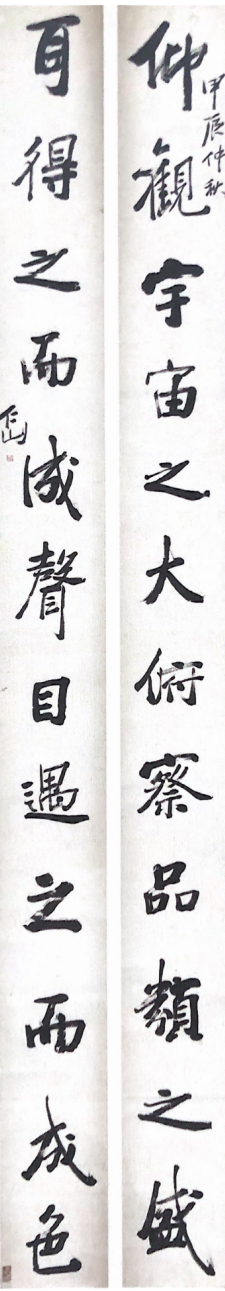 甲辰仲秋
仰觀宇宙之大俯察品類之盛
耳得之而成聲目遇之而成色